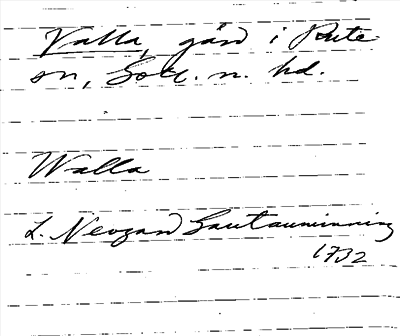 Valla, gård i Rute
sn, Gotl. n. hd.
Walla
L. Neogard Gautauminning
1732